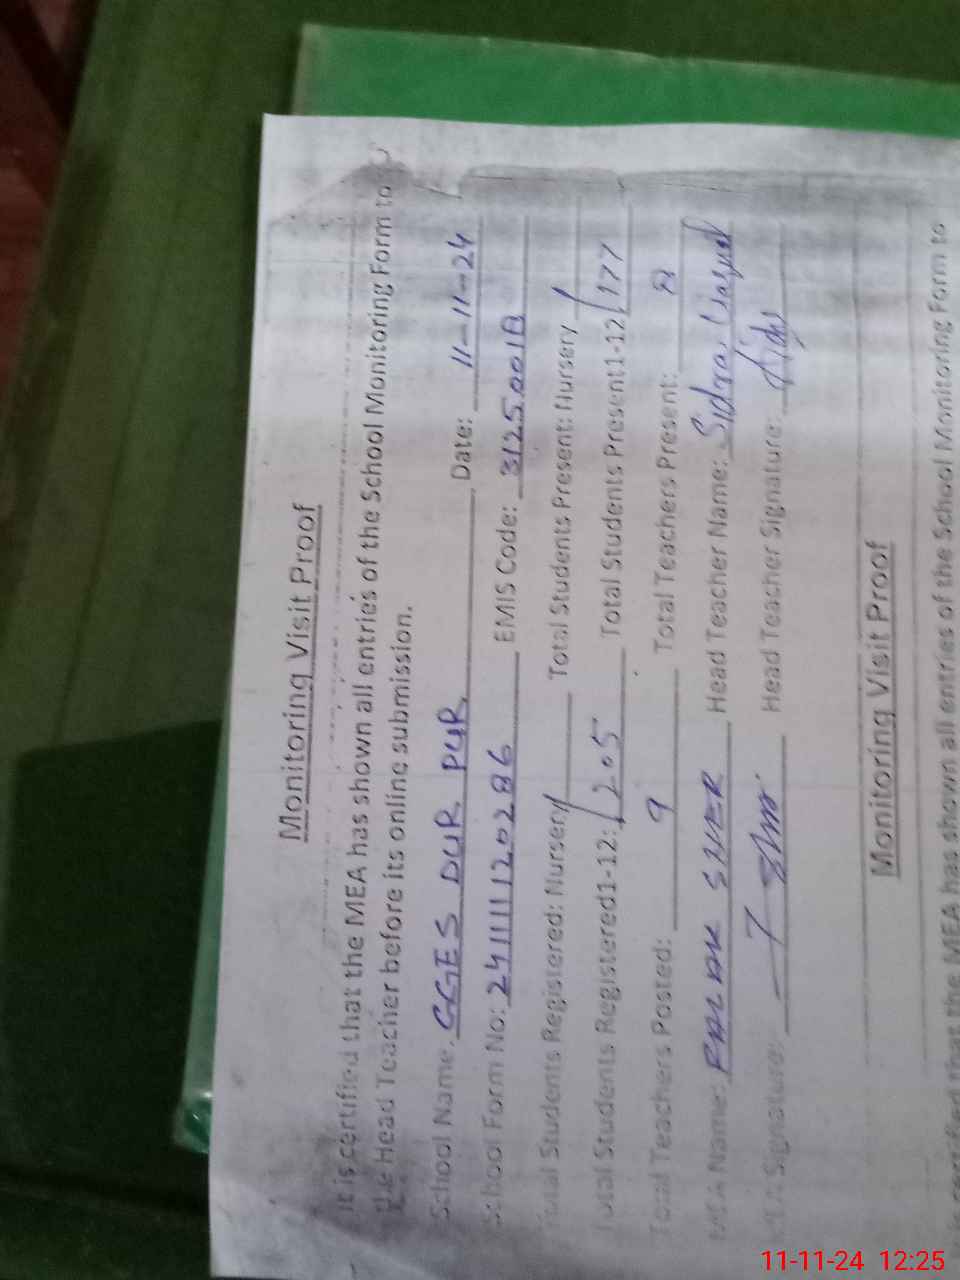 Monitoring Visit Proof
It is certified that the MEA has shown all entries of the School Monitoring Form to
the Head Teacher before its online submission.
School Name: GGES DUR PUR Date: 11-11-24
School Form No: 2411111120286 EMIS Code: 31250018
Total Students Registered: Nursery / Total Students Present: Nursery /
Total Students Registered1-12: 205 Total Students Present1-12 177
Total Teachers Posted: 9 Total Teachers Present: 8
MEA Name: Head Teacher Name: Sidra
MEA Signature: Head Teacher Signature:
Monitoring Visit Proof
is certified that the MEA has shown all entries of the School Monitoring Form to
11-11-24 12:25